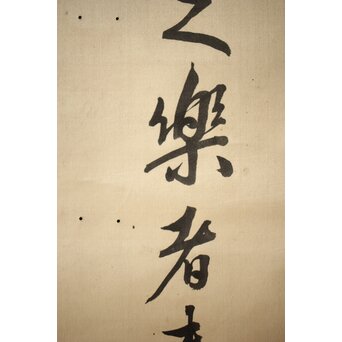 之樂者